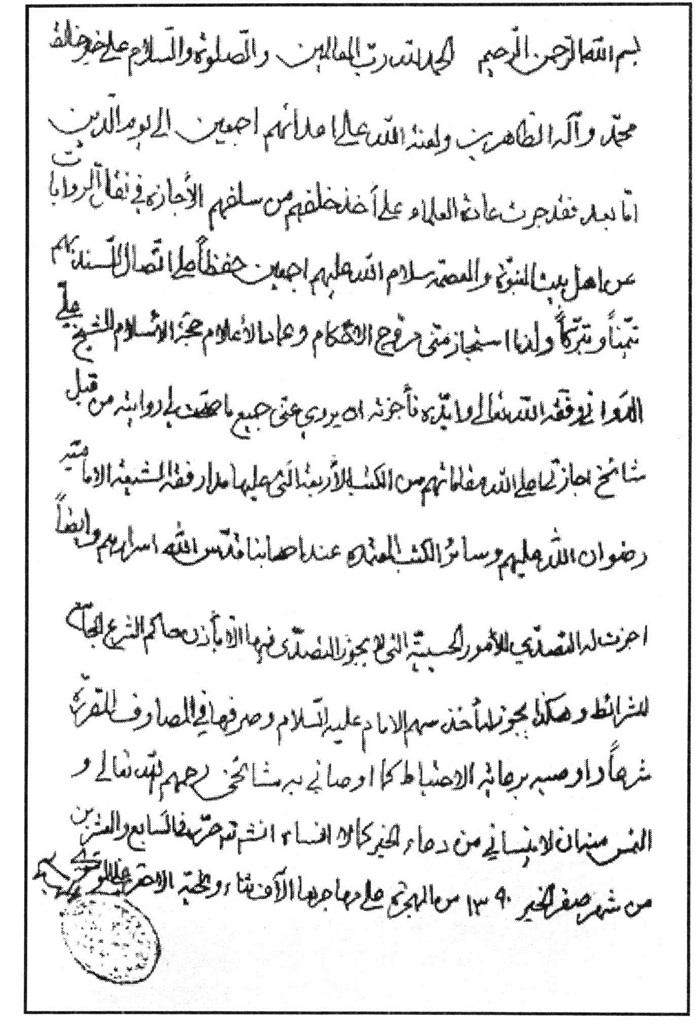 بسم الله الرحمن الرحيم الحمد لله رب العالمين والصلوة والسلام على خير خلقه
محمد وآله الطاهرين ولعنة الله على اعدائهم اجمعين الى يوم الدين
اما بعد فقد جرت عادة العلماء على أخذ خلفهم من سلفهم الأجازة في نقل الروايات
عن اهل بيت النبوة والعصمة سلام الله عليهم اجمعين حفظاً على اتصال السند بهم
تيمناً وتبركاً ولذا استجاز منى مروج الاحكام وعماد الأعلام حجة الأسلام الشيخ علي
الدواني وفقه الله تعالى وايده فأجزته ان يروي عنى جميع ما صحت لي روايته من قبل
مشائخ اجازتي اعلى الله مقاماتهم من الكتب الأربعة التى عليها مدار فقه الشيعة الامامية
رضوان الله عليهم وسائر الكتب المعتمدة عند اصحابنا قدس الله اسرارهم وايضاً
اجزت له التصدي للأمور الحسبية التى لا يجوز التصدى فيها الا بأذن حاكم الشرع الجامع
للشرائط وهكذا يجوز له أخذ سهم الامام عليه السلام وصرفها في المصارف المقررة
شرعاً واوصيه برعاية الاحتياط كما اوصاني به مشائخى رحمهم الله تعالى و
التمس منه ان لا ينساني من دعاء الخير كما لا انساه انشاء الله حرر فى السابع والعشرين
من شهر صفر الخير ١٣٩٠ من الهجرة على مهاجرها الآف ثناء وتحية الاحقر